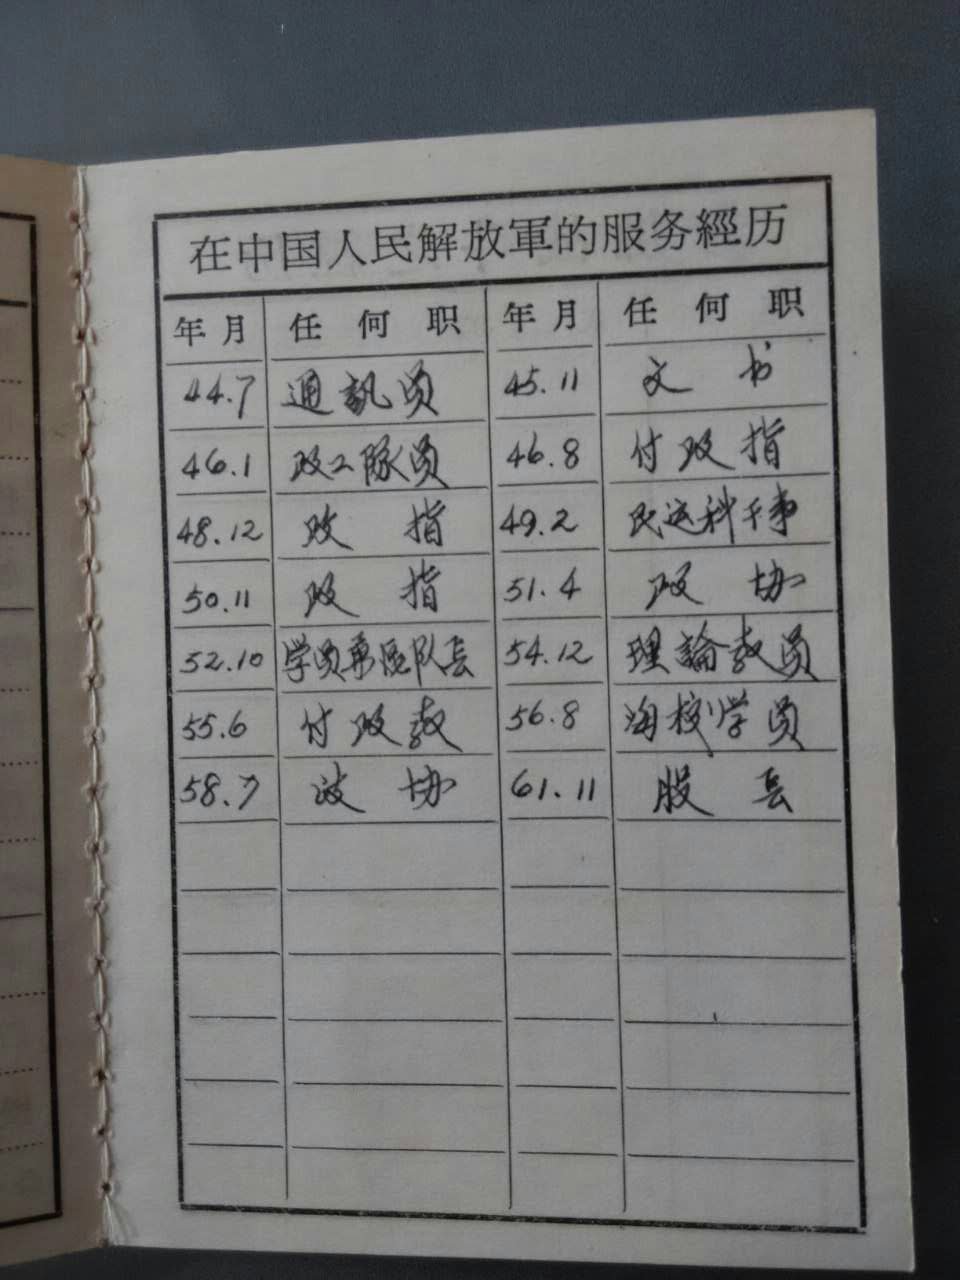 在中国人民解放軍的服务經历
年月 任何职 年月 任何职
44.7 通訊員 45.11 文书
46.1 政工队員 46.8 付政指
48.12 政指 49.2 民运科干事
50.11 政指 51.4 政协
52.10 学员队长 54.12 理論教員
55.6 付政教 56.8 海校学員
58.7 政协 61.11 股长